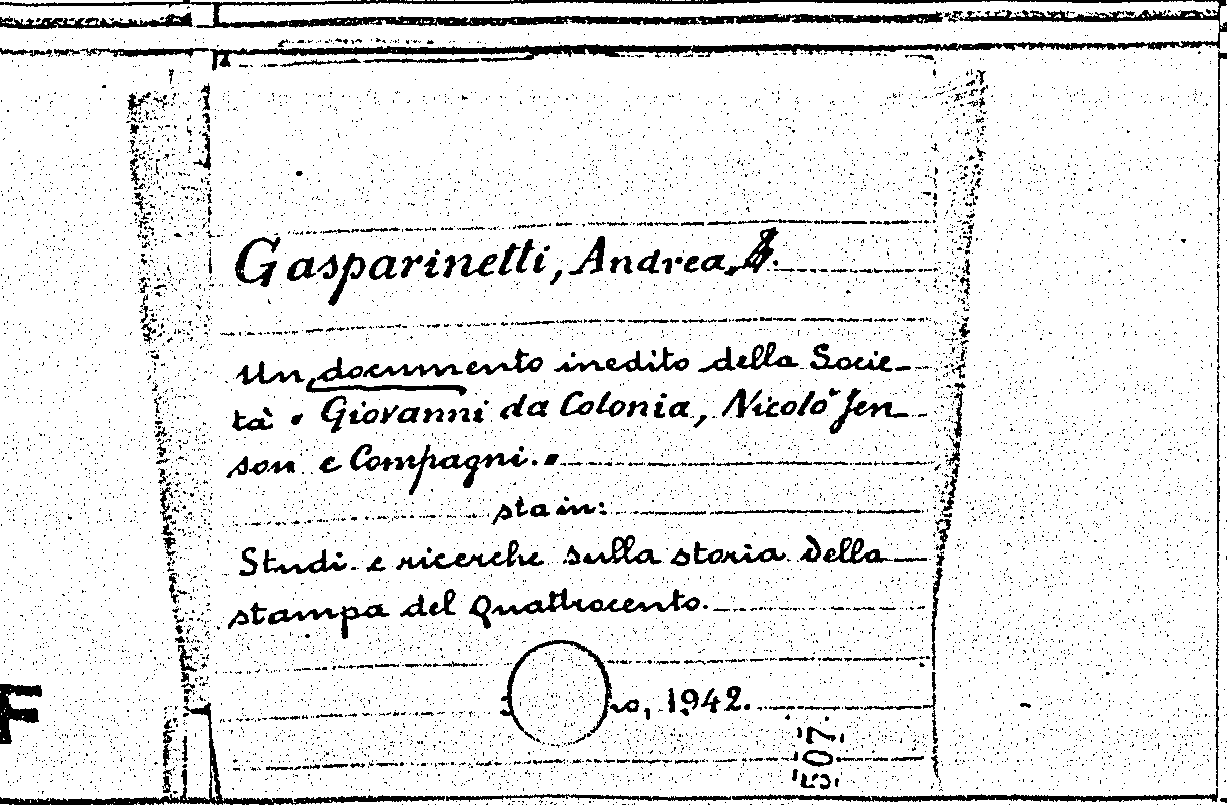 Gasparinetti, Andrea,
Un documento inedito della Socie-
tà "Giovanni da Colonia, Nicolò Jen-
son e Compagni."
sta in:
Studi e ricerche sulla storia della
stampa del Quattrocento.
1942.
507.